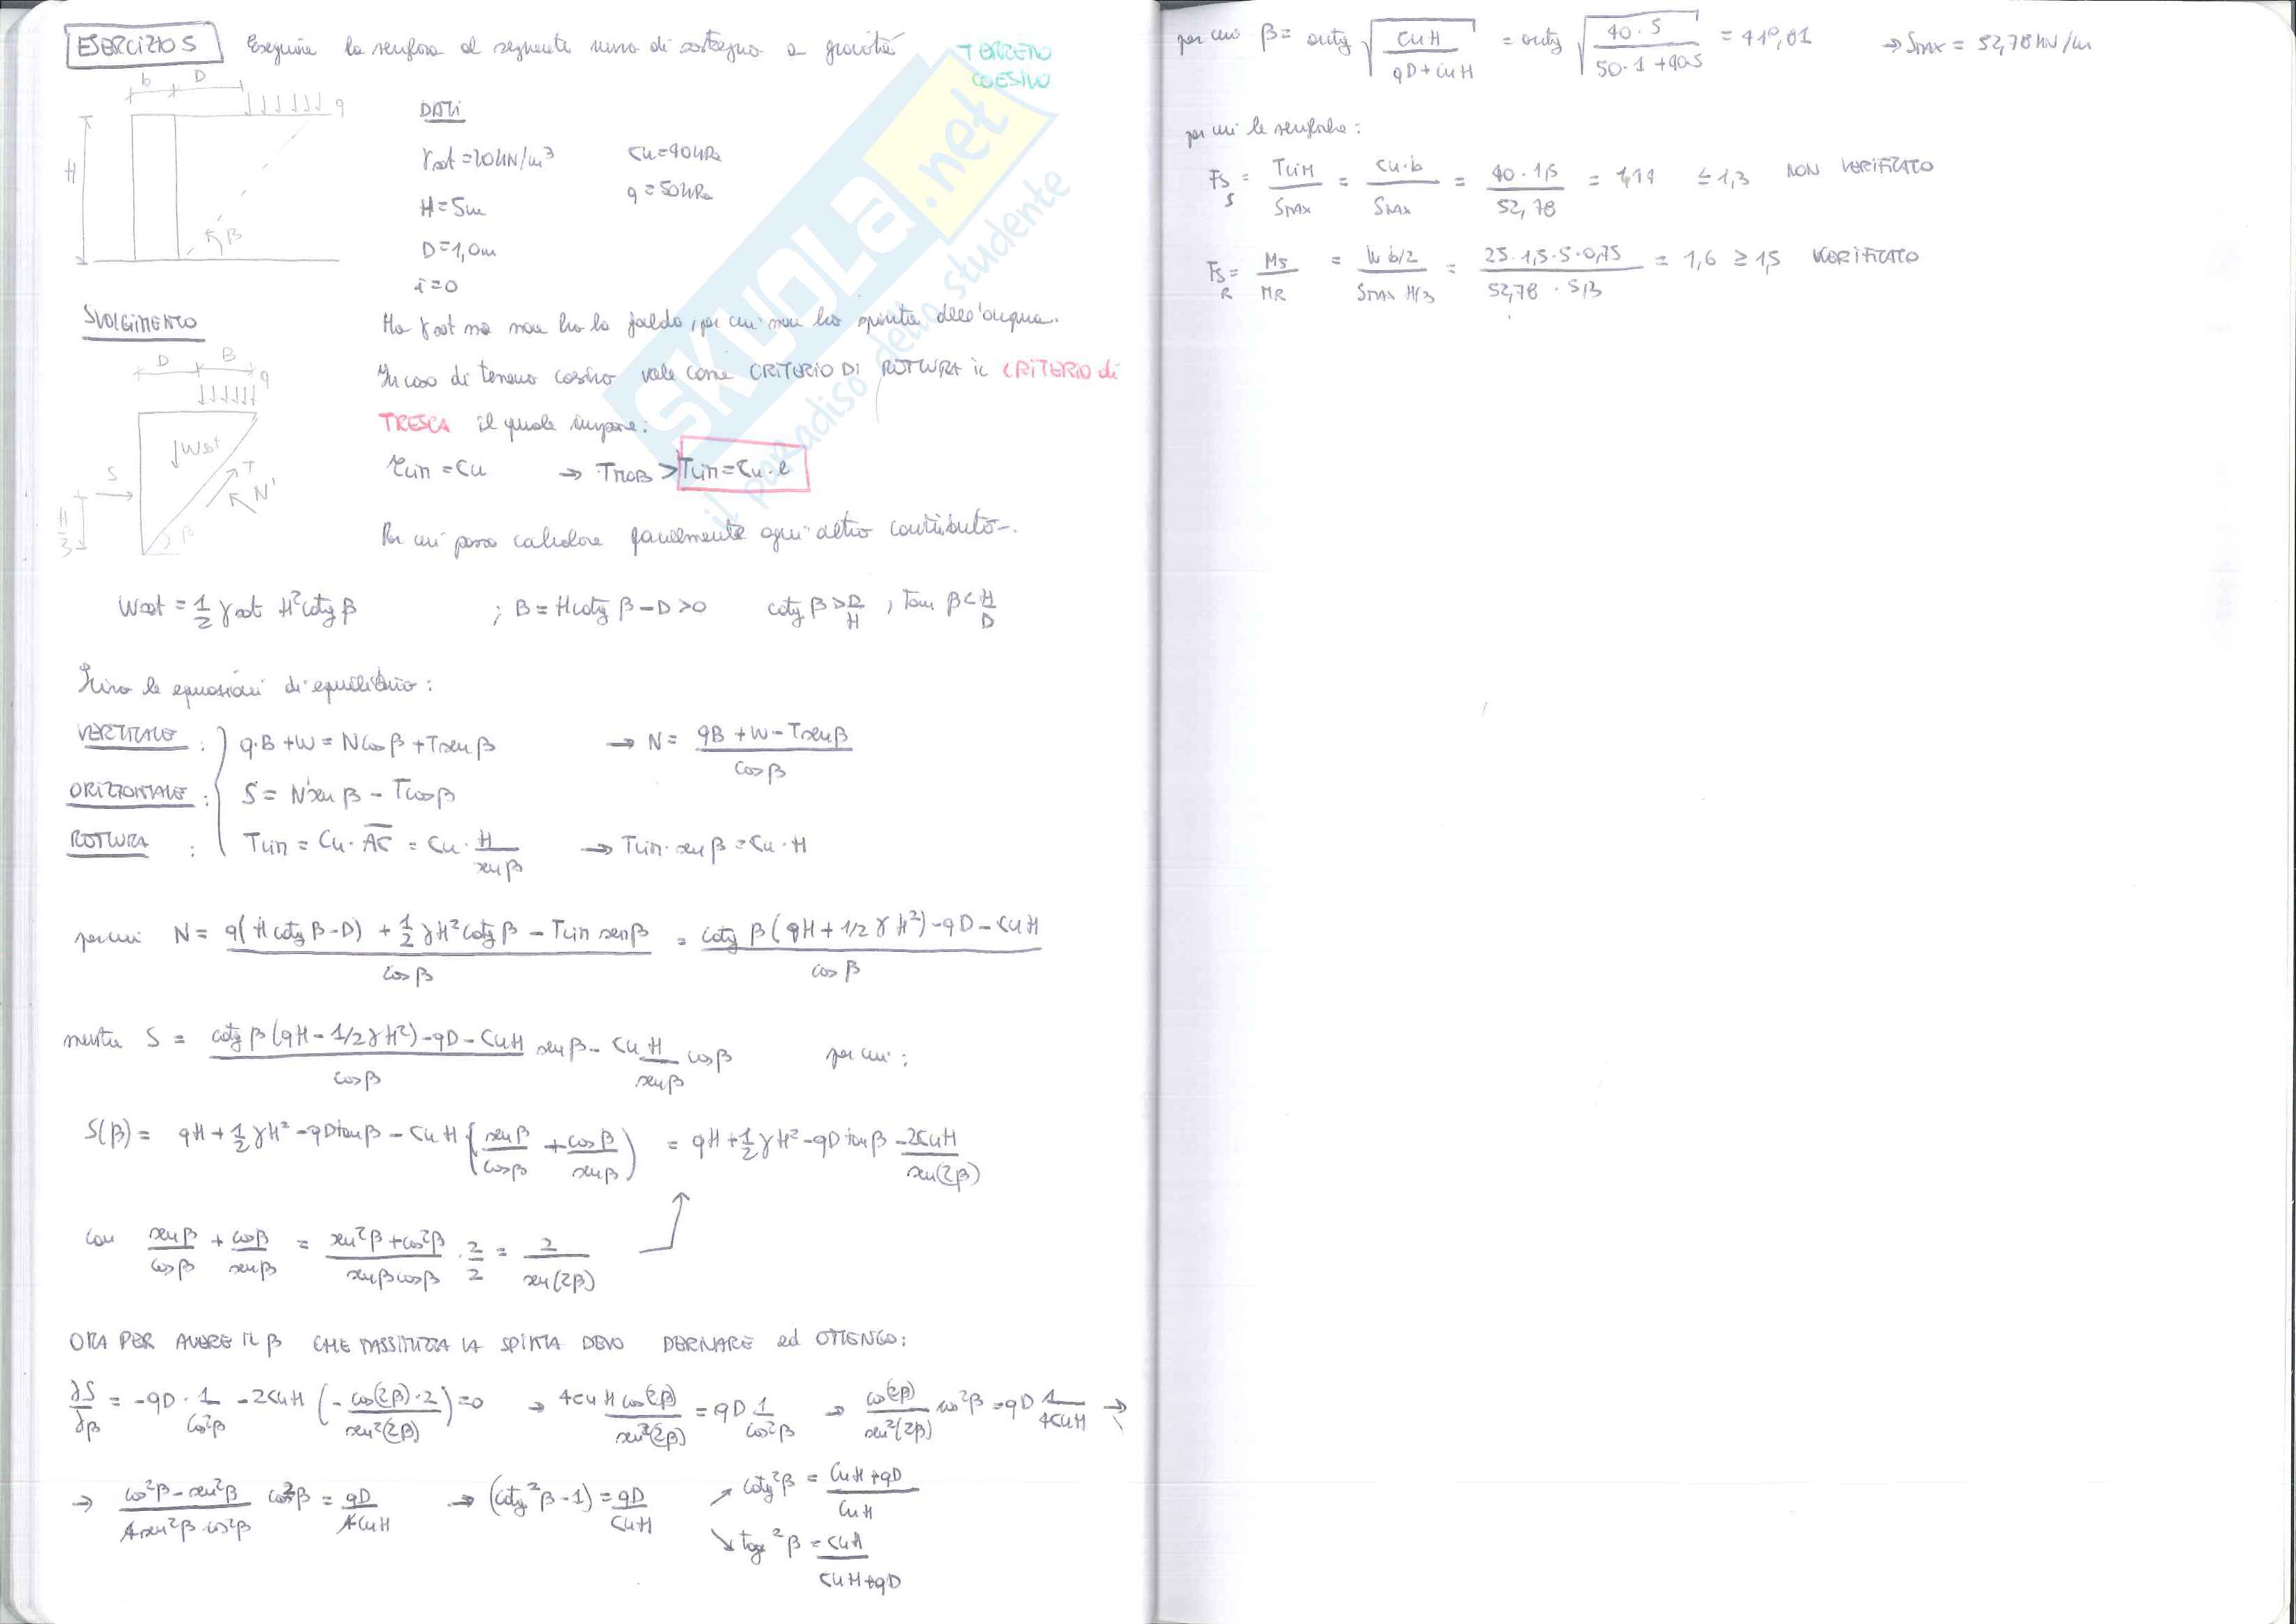 ESERCIZIO 5 Eseguire la verifica al seguente muro di sostegno a gravità
TERRENO COESIVO
b D
q
H
β
DATI
γsat = 20 kN/m³ cu = 40 kPa
H = 5m q = 50 kPa
D = 1,0m
i = 0
SVOLGIMENTO
Ho γsat ma non ho la falda, per cui non ho spinta dell'acqua.
D B
q
Wsat
S
T
N'
H/3
β
In caso di terreno coesivo vale come CRITERIO DI ROTTURA il CRITERIO di
TRESCA il quale impone:
τlim = cu → TMOB > Tlim = cu · l
Per cui posso calcolare facilmente ogni altro contributo.
Wsat = 1/2 γsat H² cotg β ; B = H cotg β - D > 0 cotg β > D/H , tan β < H/D
le equazioni di equilibrio:
VERTICALE : q·B + W = N cos β + T sen β → N = (qB + W - T sen β)/cos β
ORIZZONTALE : S = N' sen β - T cos β
ROTTURA : Tlim = cu · AC = cu · H/sen β → Tlim · sen β = cu · H
per cui N = (q(H cotg β - D) + 1/2 γH² cotg β - Tlim sen β)/cos β = (cotg β (qH + 1/2 γH²) - qD - cuH)/cos β
mentre S = (cotg β (qH - 1/2 γH²) - qD - cuH)/cos β sen β - cu H/sen β cos β per cui:
S(β) = qH + 1/2 γH² - qD tan β - cuH (sen β/cos β + cos β/sen β) = qH + 1/2 γH² - qD tan β - 2cuH/sen(2β)
con sen β/cos β + cos β/sen β = (sen²β + cos²β)/(sen β cos β) · 2/2 = 2/sen(2β)
ORA PER AVERE IL β CHE MASSIMIZZA LA SPINTA DEVO DERIVARE ed OTTENGO:
∂S/∂β = -qD · 1/cos²β - 2cuH (- cos(2β)·2/sen²(2β)) = 0 → 4cuH cos(2β)/sen²(2β) = qD 1/cos²β → cos(2β)/sen²(2β) cos²β = qD 1/4cuH →
→ (cos²β - sen²β)/(4 sen²β · cos²β) cos²β = qD/4cuH → (cotg²β - 1) = qD/cuH ↗ cotg²β = (cuH + qD)/cuH
↘ tag²β = cuH/(cuH + qD)
per cui β = arctg √(cuH/(qD + cuH)) = arctg √(40·5/(50·1 + 40·5)) = 41°,81 → SMAX = 52,78 kN/m
per cui le verifiche:
FS S = TLIM/SMAX = cu·b/SMAX = 40·1,5/52,78 = 1,14 ≤ 1,3 NON VERIFICATO
FS R = MS/MR = W b/2/SMAX H/3 = 25·1,5·5·0,75/52,78 · 5/3 = 1,6 ≥ 1,5 VERIFICATO
SKUOLA.net
il paradiso dello studente